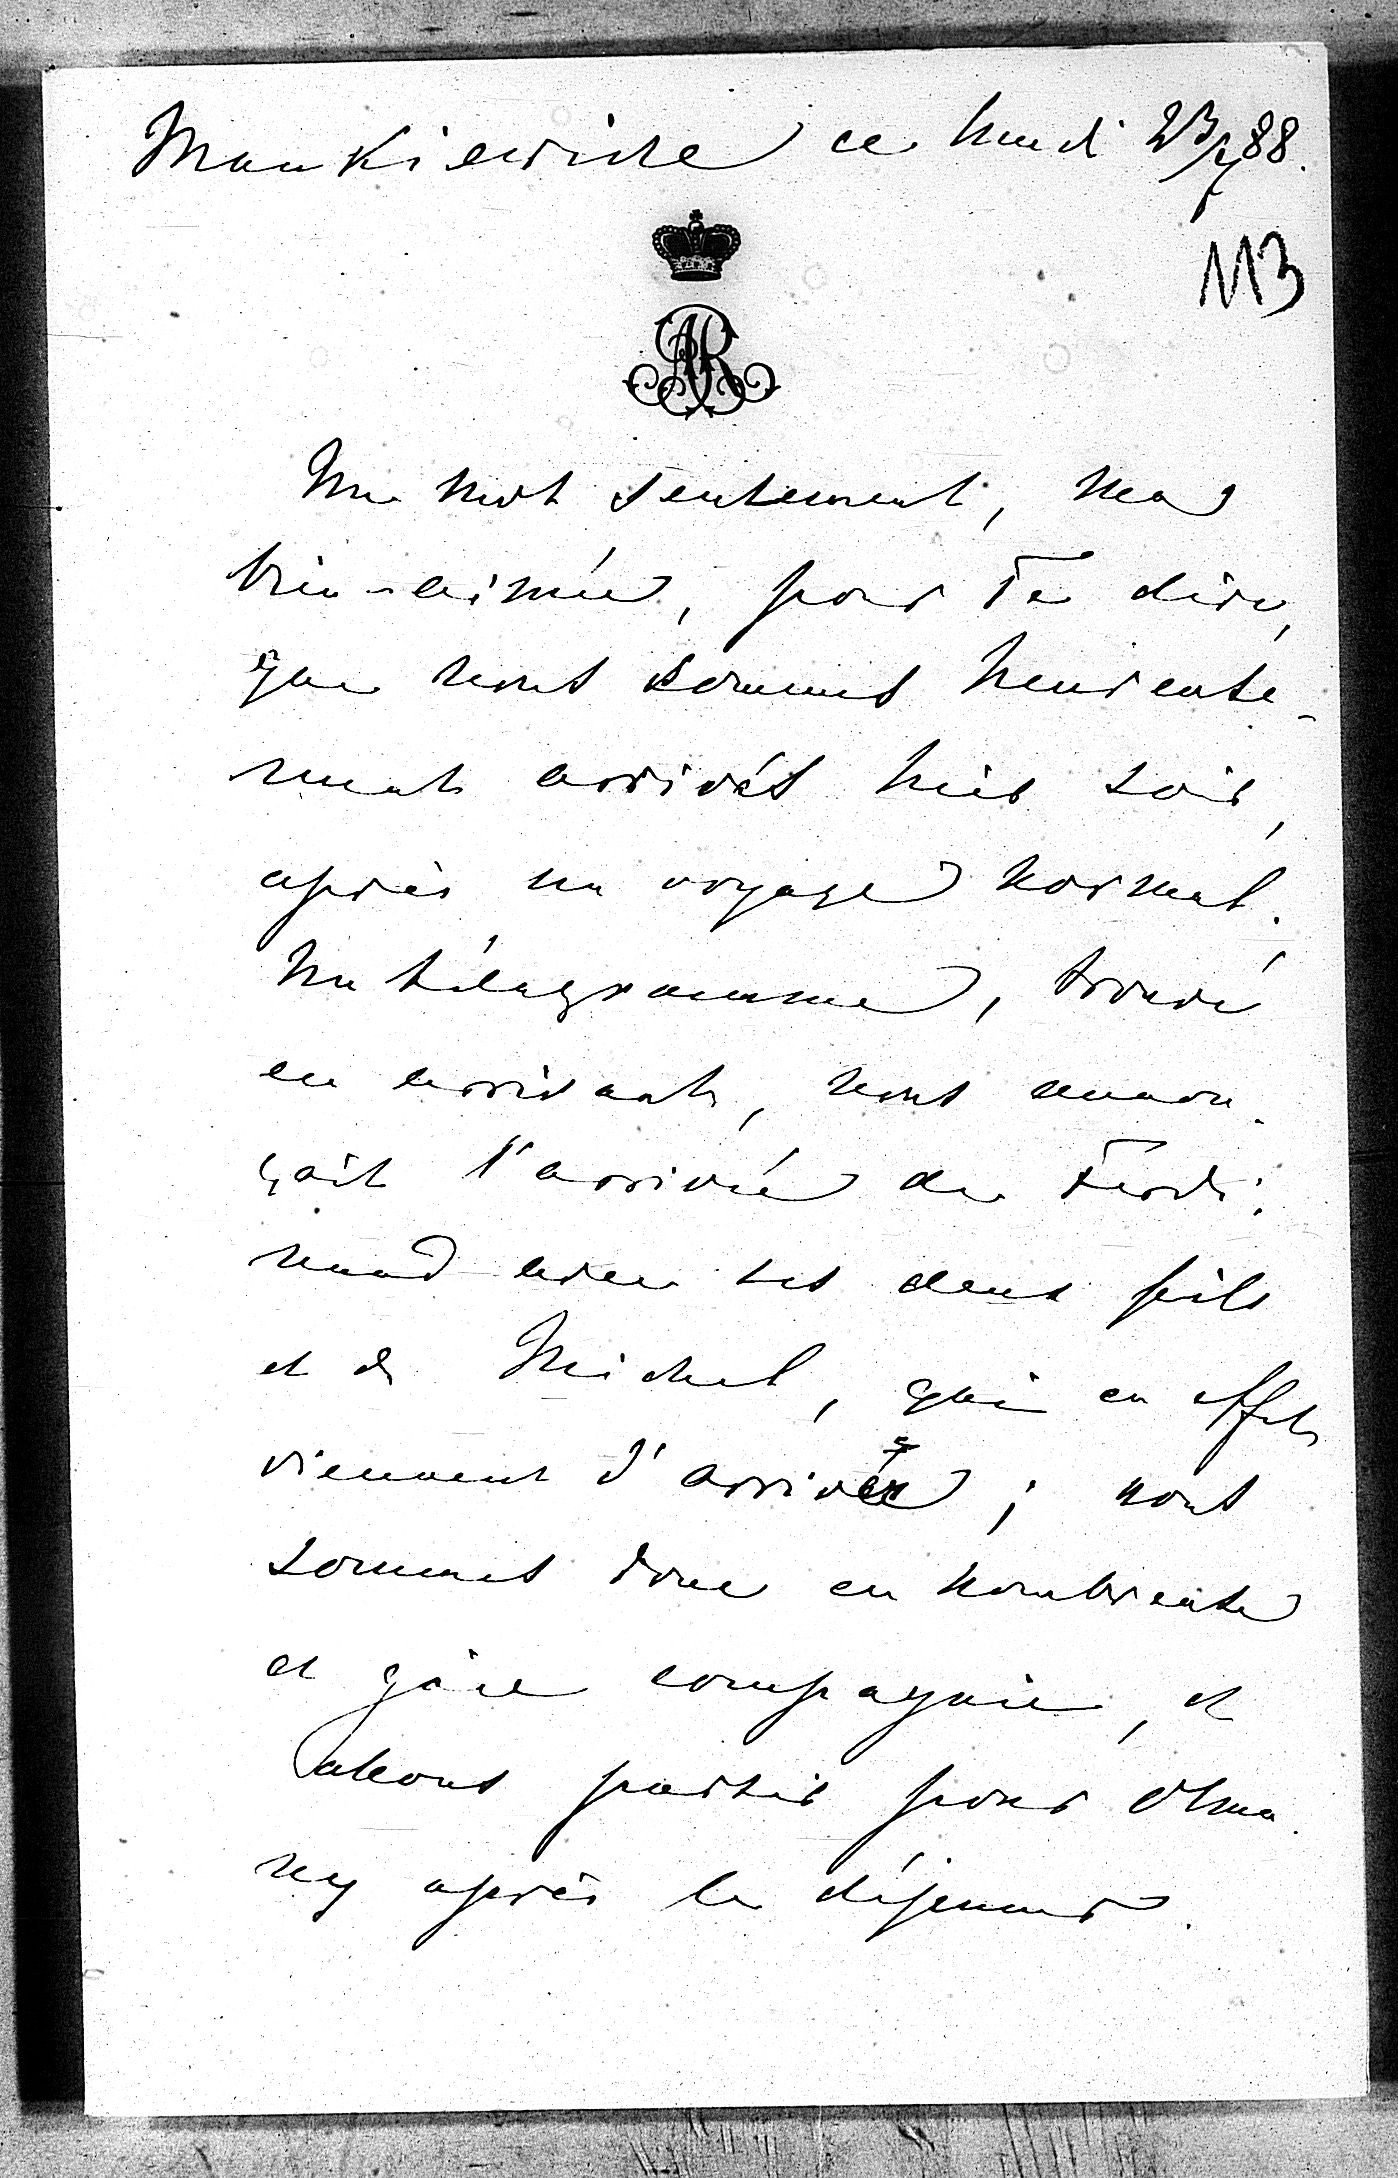 Mankiewicze ce lundi 23/7 88.
113
AR
Un mot seulement, ma
bien-aimée, pour Te dire,
que nous sommes heureuse-
ment arrivés hier soir,
après un voyage normal.
Un télégramme, trouvé
en arrivant, nous annon-
çait l'arrivée de Ferdi-
nand avec ses deux fils
et de Michel, qui en effet
viennent d'arriver; nous
sommes donc en nombreuse
et gaie compagnie, et
allons partir pour Olma-
ny après le déjeuner.